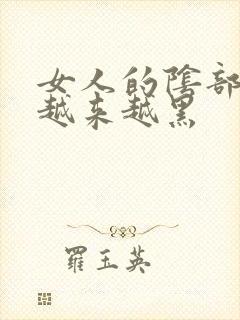 女人的陰部
越来越黑
羅玉英